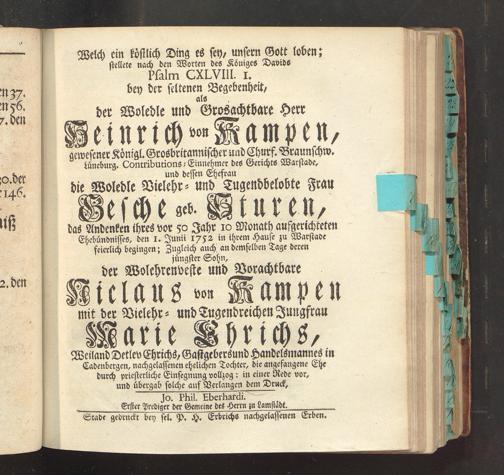 en 37.
en 56.
7. den
30. der
146.
niß
2. den
Welch ein köstlich Ding es sey, unsern Gott loben;
stellete nach den Worten des Königes Davids
Psalm CXLVIII. 1.
bey der seltenen Begebenheit,
als
der Woledle und Grosachtbare Herr
Heinrich von Kampen,
gewesener Königl. Grosbritannischer und Churf. Braunschw.
Lüneburg. Contributions-Einnehmer des Gerichts Warstade,
und dessen Ehefrau
die Woledle Vielehr- und Tugendbelobte Frau
Gesche geb. Stüren,
das Andenken ihres vor 50 Jahr 10 Monath aufgerichteten
Ehebündnisses, den 1. Junii 1752 in ihrem Hause zu Warstade
feierlich begingen; Zugleich auch an demselben Tage deren
jüngster Sohn,
der Wolehrenveste und Vorachtbare
Niclaus von Kampen
mit der Vielehr- und Tugendreichen Jungfrau
Marie Ehrichs,
Weiland Detlev Ehrichs, Gastgebers und Handelsmannes in
Cadenbergen, nachgelassenen ehelichen Tochter, die angefangene Ehe
durch priesterliche Einsegnung vollzog: in einer Rede vor,
und übergab solche auf Verlangen dem Druck,
Jo. Phil. Eberhardi.
Erster Prediger der Gemeine des Herrn zu Lamstädt.
Stade gedruckt bey sel. P. H. Erbrichs nachgelassenen Erben.